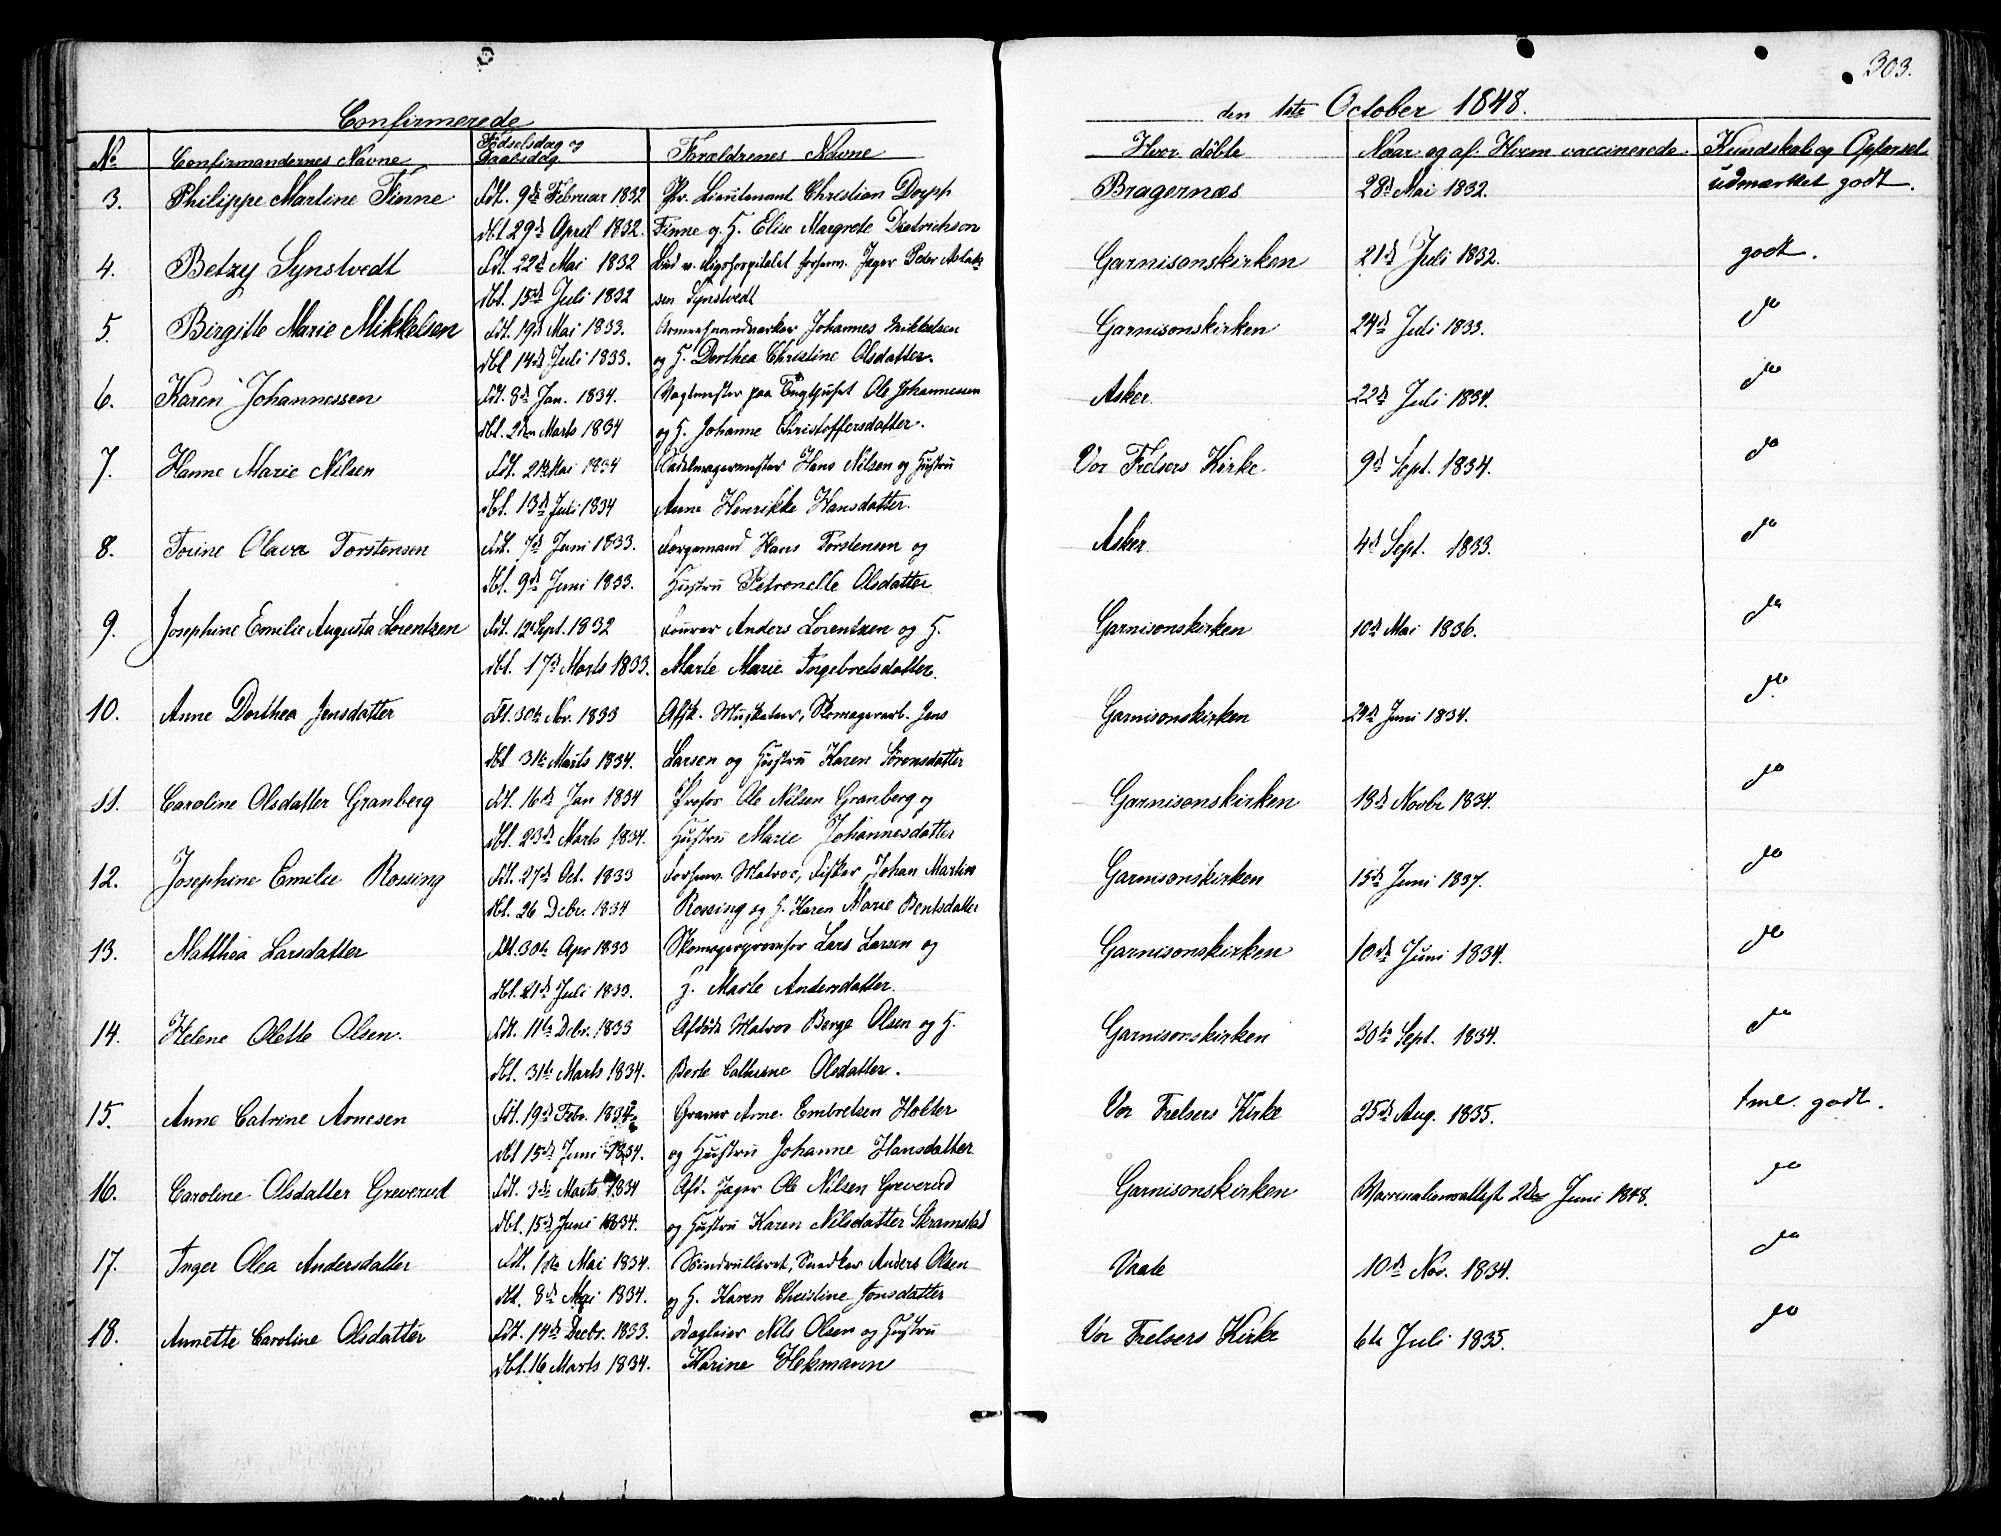 303.
Confirmerede den 1ste October 1848.
No Confirmandernes Navne Fødselsdag og Daabsdag Forældrenes Navne Hvor døbte Naar og af Hvem vaccinerede Kundskab og Opførsel
3. Philippe Martine Finne Fdt. 9de Februar 1832 Pr. Lieutenant Christian Dorph Bragernæs 28de Mai 1832. udmærket godt.
dbt 29de April 1832. Finne og H. Elise Margrete Dietrichson
4. Betzy Synstvedt Fdt. 22de Mai 1832 Bud v. Rigshospitalet forhenv. Jæger Peder Aslak- Garnisonskirken 21de Juli 1832. godt.
dbt. 15de Juli 1832 sen Synstvedt
5. Birgitte Marie Mikkelsen Fdt. 19de Mai 1833. Johannes Mikkelsen Garnisonskirken 24de Juli 1833. do
dbt 14de Juli 1833. og H. Dorthea Christine Olsdatter.
6. Karen Johannessen Fdt. 8de Jan. 1834. Vagtmester paa Tugthuset Ole Johannessen Asker 22de Juli 1834. do
dbt. 2den Marts 1834 og H. Johanne Christoffersdatter.
7. Hanne Marie Nilsen Fdt. 21de Mai 1834 Sadelmagermester Hans Nilsen og Hustru Vor Frelsers Kirke 9de Sept. 1834. do
dbt. 13de Juli 1834 Anne Henrikke Hansdatter.
8. Torine Olava Torstensen Fdt. 7de Juni 1833. Færgemand Hans Torstensen og Asker 4de Sept. 1833. do
dbt. 9de Juni 1833. Hustru Petronelle Olsdatter
9. Josephine Emilie Augusta Lorentzen Fdt. 12 Sept. 1832 Fourer Anders Lorentzen og H. Garnisonskirken 10de Mai 1836. do
dbt. 17de Marts 1833. Marte Marie Ingebretsdatter.
10. Anne Dorthea Jensdatter Fdt. 30te Nov. 1833 Afsk. Musketeer, Skomagerarb. Jens Garnisonskirken 24de Juni 1834. do
dbt 31te Marts 1834. Larsen og Hustru Karen Sørensdatter
11. Caroline Olsdatter Granberg Fdt. 16de Jan 1834 Ole Nilsen Granberg og Garnisonskirken 18de Novbr 1834. do
dbt. 23de Marts 1834. Hustru Marie Johannesdatter
12. Josephine Emilie Rossing Fdt. 27de Oct. 1833 Forhenv. Matros, Fisker Johan Martin Garnisonskirken 15de Juni 1837. do
dbt. 26 Debr. 1834 Rossing og H. Karen Marie Bentsdatter
13. Matthea Larsdatter Fdt. 30te Apr 1833 Lars Larsen og Garnisonskirken 10de Juni 1834. do
dbt. 21de Juli 1833. H. Marte Andersdatter.
14. Helene Olette Olsen. Fdt. 11te Debr. 1833 Afdøde Matros Børge Olsen og H. Garnisonskirken 30te Sept. 1834. do
dbt. 31te Marts 1834. Berte Cathrine Olsdatter.
15. Anne Catrine Arnesen Fdt. 19de Febr. 1834 Graver Arne Embretsen Holter Vor Frelsers Kirke 25de Aug. 1835. tml. godt.
dbt 15de Juni 1834. og Hustru Johanne Hansdatter
16. Caroline Olsdatter Greverud Fdt. 3de Marts 1834 Afd. Jæger Ole Nilsen Greverud Garnisonskirken Vaccinationsattest 2den Juni 1848. do
dbt. 15de Juni 1834. og Hustru Karen Nilsdatter Skramstad
17. Inger Olea Andersdatter Fdt. 1ste Mai 1834. Snedker Anders Olsen Vaale 10de Nov. 1834. do
dbt. 8de Mai 1834. og H. Karen Christine Jonsdatter
18. Annette Caroline Olsdatter Fdt. 14de Decbr. 1833. Dagleier Nils Olsen og Hustru Vor Frelsers Kirke 6te Juli 1835. do
dbt. 16 Marts 1834. Karine Hekmann